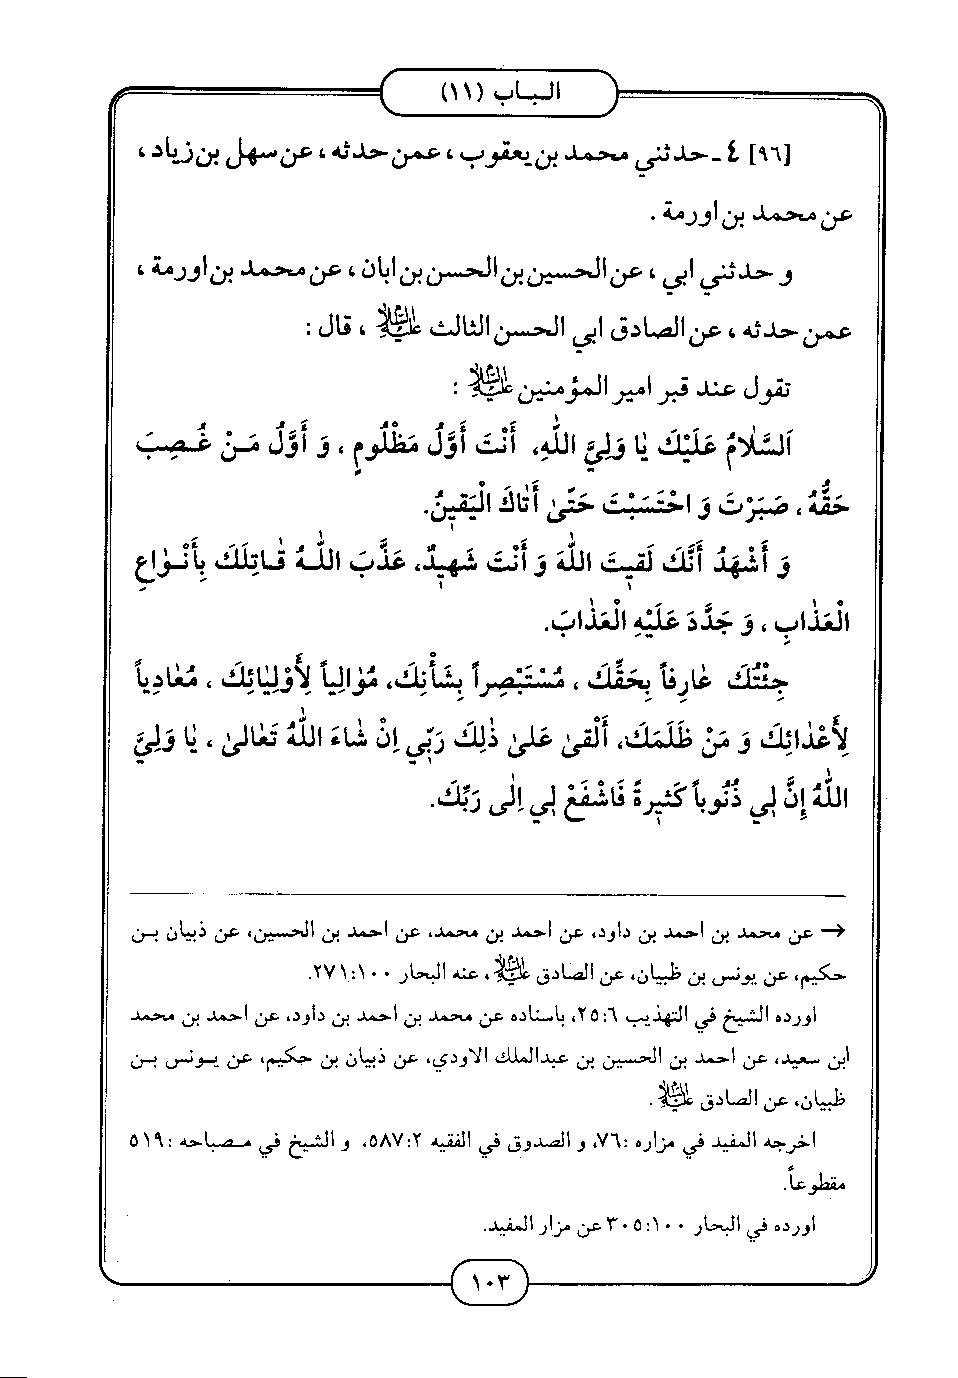 الباب (١١)
[٩٦] ٤ ـ حدثني محمد بن يعقوب ، عمن حدثه ، عن سهل بن زياد ،
عن محمد بن اورمة .
و حدثني ابي ، عن الحسين بن الحسن بن ابان ، عن محمد بن اورمة ،
عمن حدثه ، عن الصادق ابي الحسن الثالث عليه السلام ، قال :
تقول عند قبر امير المؤمنين عليه السلام :
اَلسَّلاٰمُ عَلَيْكَ يٰا وَلِيَّ اللّٰهِ، أَنْتَ أَوَّلُ مَظْلُومٍ ، وَ أَوَّلُ مَنْ غُصِبَ
حَقُّهُ ، صَبَرْتَ وَ احْتَسَبْتَ حَتّىٰ أَتٰاكَ الْيَقينُ.
وَ أَشْهَدُ أَنَّكَ لَقيتَ اللّٰهَ وَ أَنْتَ شَهيدٌ، عَذَّبَ اللّٰهُ قٰاتِلَكَ بِأَنْوٰاعِ
الْعَذٰابِ ، وَ جَدَّدَ عَلَيْهِ الْعَذٰابَ.
جِئْتُكَ عٰارِفاً بِحَقِّكَ ، مُسْتَبْصِراً بِشَأْنِكَ، مُوٰالِياً لِأَوْلِيٰائِكَ ، مُعٰادِياً
لِأَعْدٰائِكَ وَ مَنْ ظَلَمَكَ، أَلْقىٰ عَلىٰ ذٰلِكَ رَبّي اِنْ شٰاءَ اللّٰهُ تَعٰالىٰ ، يٰا وَلِيَّ
اللّٰهِ إِنَّ لي ذُنُوباً كَثيرةً فَاشْفَعْ لي اِلٰى رَبِّكَ.
→ عن محمد بن احمد بن داود، عن احمد بن محمد، عن احمد بن الحسين، عن ذبيان بن
حكيم، عن يونس بن ظبيان، عن الصادق عليه السلام ، عنه البحار ١٠٠:٢٧١.
اورده الشيخ في التهذيب ٦:٢٥، باسناده عن محمد بن احمد بن داود، عن احمد بن محمد
ابن سعيد، عن احمد بن الحسين بن عبدالملك الاودي، عن ذبيان بن حكيم، عن يونس بن
ظبيان، عن الصادق عليه السلام .
اخرجه المفيد في مزاره :٧٦، و الصدوق في الفقيه ٢:٥٨٧، و الشيخ في مصباحه :٥١٩
مقطوعاً.
اورده في البحار ١٠٠:٣٠٥ عن مزار المفيد.
١٠٣